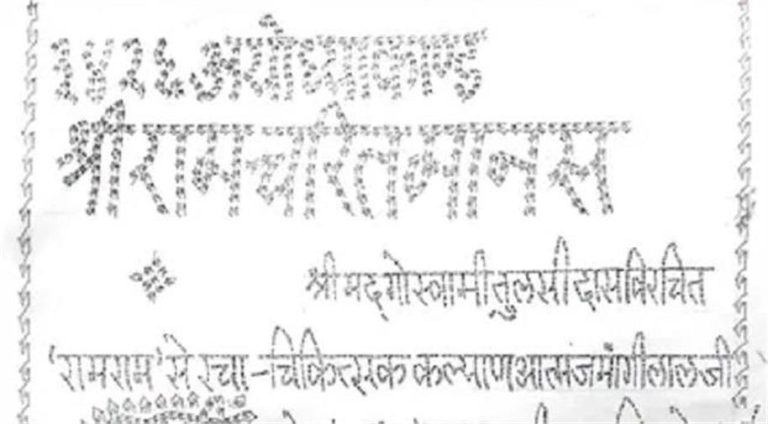 २४२६ अयोध्याकाण्ड
श्रीरामचरितमानस
श्रीमद्गोस्वामीतुलसीदासविरचित
'रामराम' से रचा -चिकित्सक कल्याणआत्मजमाँगीलालजी